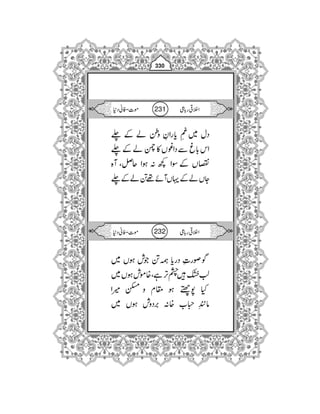 330
اخلاقی رباعی 231 موت۔فانی دنیا
دل میں غمِ یارانِ وطن لے کے چلے
اس باغ سے داغوں کا چمن لے کے چلے
نقصاں کے سوا کچھ نہ ہوا حاصل، آہ
جاں لے کے یہاں آئے تھے تن لے کے چلے
اخلاقی رباعی 232 موت۔فانی دنیا
گو صورتِ دریا ہمہ تن جوش ہوں میں
لب خشک ہیں چشم تر ہے، خاموش ہوں میں
کیا پوچھتے ہو مقام و مسکن میرا
مانندِ حباب خانہ بردوش ہوں میں